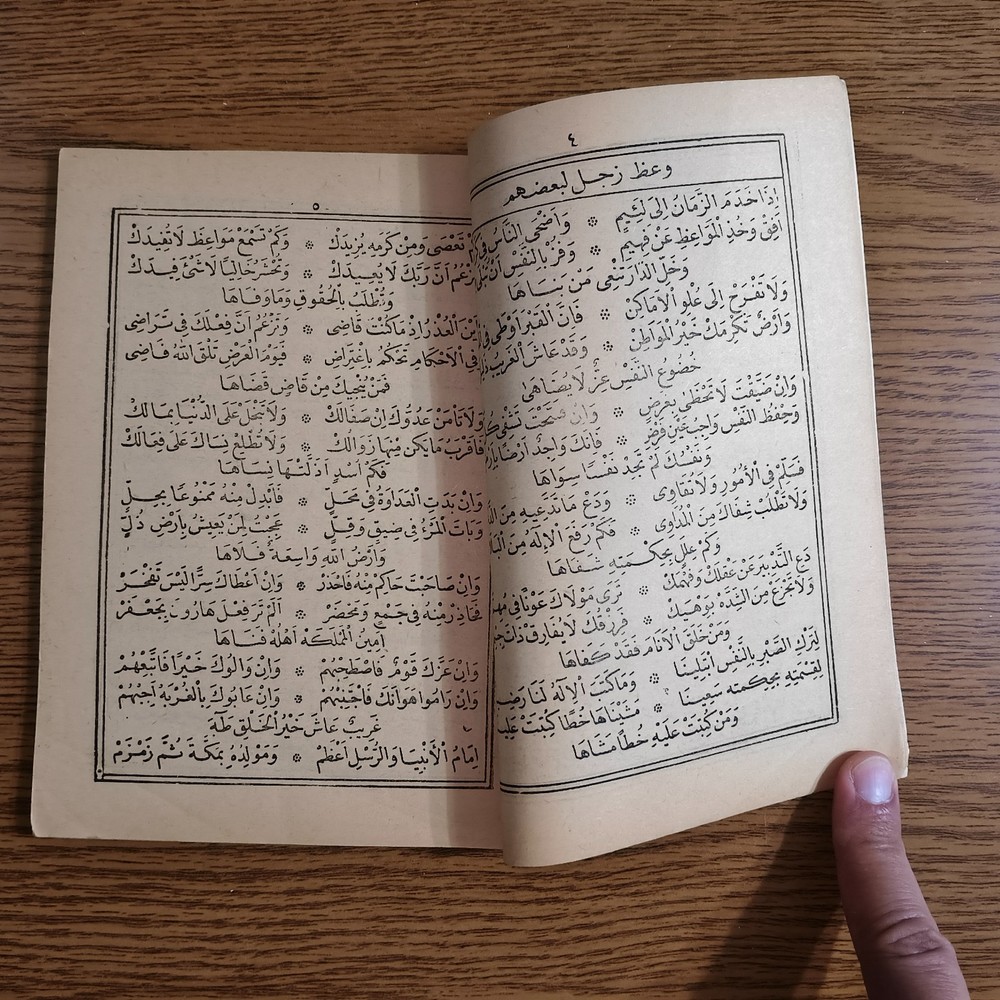 ٤
وعظ زجل لبعضهم
إِذَا خَدَمَ الزَّمَانُ إِلَى لَئِيمٍ ❊ وَأَضْحَى النَّاسُ فِي
أَفِقْ وَخُذِ الْمَوَاعِظَ عَنْ فَهِيمٍ ❊ وَفُرْ بِالنَّفْسِ أَنْ
وَخَلِّ الدَّارَ تَنْعِي مَنْ بَنَاهَا
وَلَا تَفْرَحْ إِلَى عُلُوِّ الْأَمَاكِنْ ❊ فَإِنَّ الْقَبْرَ أَوْطَى
وَأَرْضٌ تُكْرِمَكْ خَيْرُ الْمَوَاطِنْ ❊ وَقَدْ عَاشَ الْغَرِيبُ
خُضُوعُ النَّفْسِ عِزٌّ لَا يُضَاهَى
وَإِنْ ضَيَّقْتَ لَا تَحْظَى بِعَرْضٍ ❊ وَإِنْ
وَحِفْظُ النَّفْسِ وَاجِبْ ❊ فَإِنَّكَ وَاجِدٌ أَرْضًا
وَنَفْسُكَ لَمْ تَجِدْ نَفْسًا سِوَاهَا
فَسَلِّمْ فِي الْأُمُورِ وَلَا تُقَاوِى ❊ وَدَعْ مَا تَدَّعِيهِ مِنَ
وَلَا تَطْلُبْ شِفَاكَ مِنَ الْمُدَاوِى ❊ فَكَمْ رَفَعَ الْإِلَهُ مِنَ
وَكَمْ عِلَلٍ بِحِكْمَتِهِ شَفَاهَا
دَعِ التَّدْبِيرَ عَنْ عَقْلَكْ وَفَهْمَكْ ❊ تَرَى مَوْلَاكَ عَوْنًا فِي
وَلَا تَجْزَعْ مِنَ الشِّدَّةِ ❊ فَرِزْقُكَ لَا يُفَارِقْ ذَاتَ
وَمَنْ خَلَقَ الْأَنَامَ فَقَدْ كَفَاهَا
لِتَرْكِ الصَّبْرِ بِالنَّفْسِ ابْتُلِينَا ❊ وَمَا كَتَبَ الْإِلَهُ لَنَا رَضِينَا
لِقِسْمَتِهِ بِحِكْمَتِهِ سَعِينَا ❊ مَشَيْنَاهَا خُطًا كُتِبَتْ عَلَيْنَا
وَمَنْ كُتِبَتْ عَلَيْهِ خُطًا مَشَاهَا
٥
تَعْصَى وَمِنْ كَرَمِهِ يُزِيدَكْ ❊ وَكَمْ تَسْمَعْ مَوَاعِظَ لَا تُفِيدَكْ
تَزْعُمْ أَنَّ رَبَّكَ لَا يُعِيدَكْ ❊ وَتُحْشَرُ خَالِيًا لَا شَىْءَ فِيدَكْ
وَتُطْلَبُ بِالْحُقُوقِ وَمَا وَفَاهَا
أَيْنَ الْعُذْرُ إِذْ مَا كُنْتَ قَاضِى ❊ وَتَزْعُمُ أَنَّ فِعْلَكَ فِي تَرَاضِى
فِي الْأَحْكَامِ تَحْكُمْ بِاغْتِرَاضِ ❊ فَيَوْمَ الْعَرْضِ تَلْقَ اللهَ قَاضِى
فَمَنْ يُنْجِيكَ مِنْ قَاضٍ قَضَاهَا
وَلَا تَأْمَنْ عَدُوَّكَ إِنْ صَفَالَكْ ❊ وَلَا تَبْخَلْ عَلَى الدُّنْيَا بِمَالَكْ
فَأَقْرَبَ مَا يَكُنْ مِنْهَا زَوَالَكْ ❊ وَلَا تُطْلِعْ نِسَاكَ عَلَى فِعَالَكْ
فَكَمْ أَسَدٍ أَذَلَّتْهَا نِسَاهَا
وَإِنْ بَدَتِ الْعَدَاوَةُ فِي مَحَلٍّ ❊ فَأَبْدِلْ مِنْهُ مَمْنُوعًا بِحِلٍّ
وَبَاتَ الْمَرْءُ فِي ضِيقٍ وَقِلٍّ ❊ عَجِبْتُ لِمَنْ يَعِيشُ بِأَرْضِ ذُلٍّ
وَأَرْضُ اللهِ وَاسِعَةٌ فَلَاهَا
وَإِنْ صَاحَبْتَ حَاكِمْ تِهْ فَاحْذَرْ ❊ وَإِنْ أَعْطَاكَ سِرًّا لَيْسَ تَفْخَرْ
فَحَاذِرْ مِنْهُ فِي جَمْعٍ وَمَحْضَرْ ❊ أَلَمْ تَرَ فِعْلَ هَارُونَ بِجَعْفَرْ
أَمِينُ الْمَمْلَكَهْ أَهْلَهُ فَنَاهَا
وَإِنْ عَزَّكَ قَوْمٌ فَاصْطَحِبْهُمْ ❊ وَإِنْ وَالَوْكَ خَيْرًا فَاتَّبِعْهُمْ
وَإِنْ رَامُوا هَوَانَكَ فَاجْتَنِبْهُمْ ❊ وَإِنْ عَابُوكَ بِالْغُرْبَهْ أَجِبْهُمْ
غَرِيبٌ عَاشَ خَيْرُ الْخَلْقِ طَهَ
إِمَامُ الْأَنْبِيَا وَالرُّسْلِ أَعْظَمْ ❊ وَمَوْلِدُهُ بِمَكَّةَ ثُمَّ زَمْزَمْ